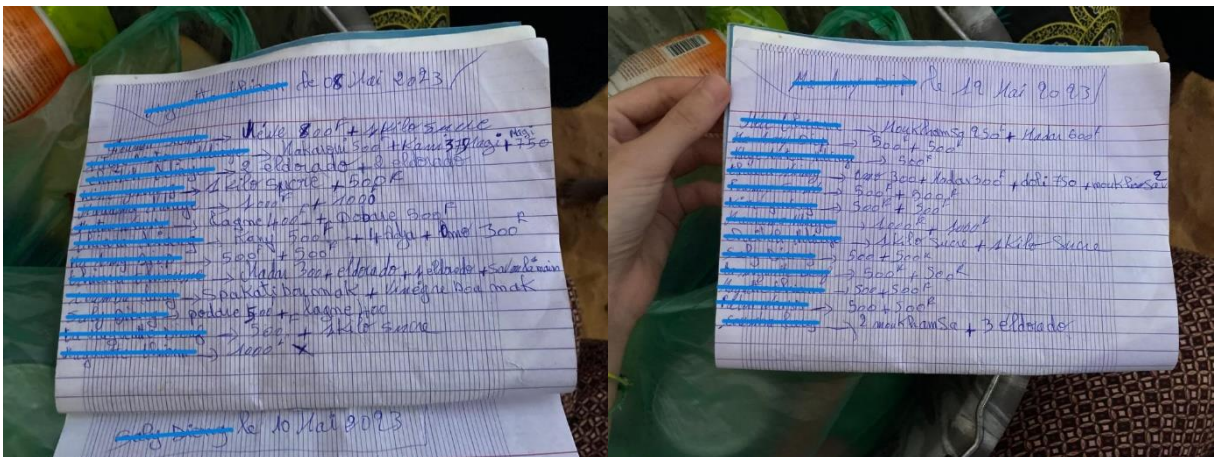 le 08 Mai 2023
→ Huile 800F + 1 kilo sucre
→ Makaroni 500F + Kani 375 Magi + 750
→ 2 eldorado + 2 eldorado
→ 1 kilo sucre + 500F
→ 1000F + 1000
→ Ragne 400F + 500F
→ 500F + 4 + omo 300F
→ 500F + 500F
→ Madar 300 + eldorado + 1 eldorado +
→ Spakati bou mak + Vinegne bou mak
→ podare 500 + Ragne 400
→ 500 + 1 kilo sucre
→ 1000F X
le 10 Mai 2023
le 12 Mai 2023
→ MoukhamSa 250F + Madar 600F
→ 500F + 500F
→ 500F
→ omo 300 + Madar 300F + doli 750 + moukhamsa 2
→ 500F + 500F
→ 500F + 500F
→ 1000F + 1000F
→ 1 kilo Sucre + 1 Kilo Sucre
→ 500 + 500F
→ 500F + 500F
→ 500 + 500F
→ 500 + 500F
→ 2 moukhamSa + 3 eldorado